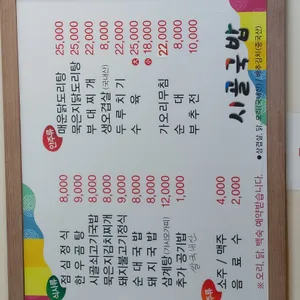 시골국밥
안주류
매운닭도리탕 25,000
묵은지닭도리탕 25,000
부대찌개 22,000
생오겹살(국내산) 8,000
두루치기 22,000
수육 大 25,000
小 18,000
가오리무침 22,000
순대 8,000
부추전 10,000
식사류
점심정식 8,000
한우곰탕 9,000
시골쇠고기국밥 8,000
묵은지김치찌개 8,000
돼지불고기정식 9,000
순대국밥 8,000
돼지국밥 8,000
삼계탕 12,000
추가 공기밥 1,000
소주 / 맥주 4,000
음료수 2,000
※ 오리, 닭, 백숙 예약받습니다.